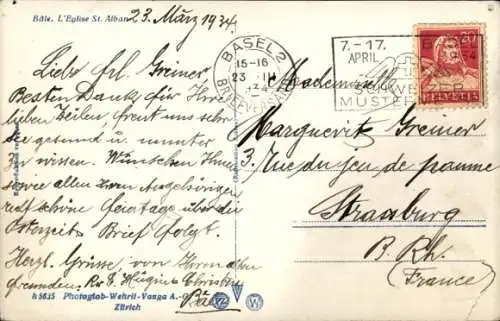 Bâle. L'Eglise St. Alban
23. März 1934.
Liebe Frl. Greiner
Besten Dank für Ihre
lieben Zeilen, freut uns sehr
Sie gesund u. munter
zu wissen. Wünschen Ihnen
sowie allen Ihren Angehörigen
recht schöne Feiertage über die
Osterzeit. Brief folgt.
Herzl. Grüsse von Ihren alten
Freunden.
Bâle
BASEL 2
15-16
23. III
34
BRIEFVERSAND
7.-17.
APRIL
BASEL
SCHWEIZER
MUSTER
20
HELVETIA
Mademoiselle
Marguerite Greiner
3, Rue du jeu de paume
Strasburg
B. Rh.
(France)
k 5635 Photoglob-Wehrli-Vouga A.-G.
Zürich